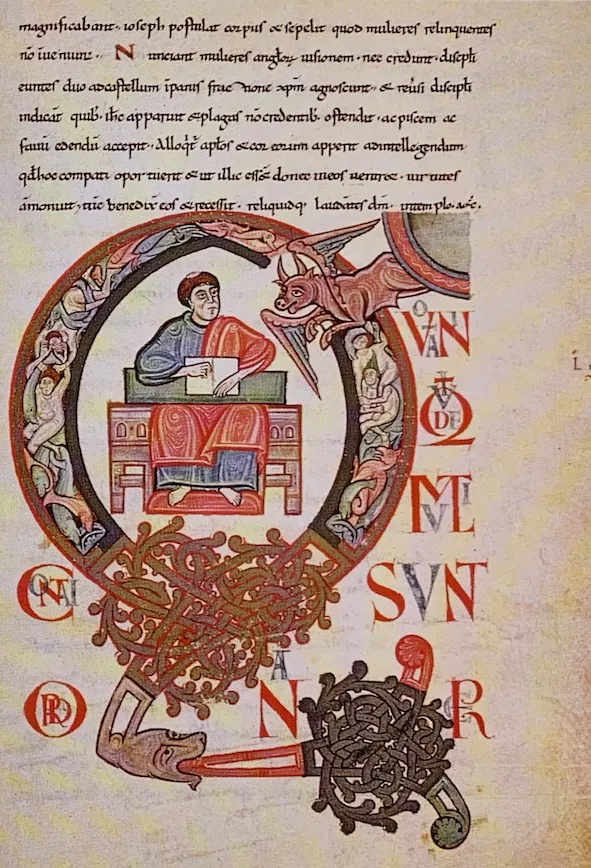 magnificabant · ioseph postulat corpus & sepelit quod mulieres relinquentes
nō īueniunt · Nunciant mulieres anglorᷣ uisionem · nec credunt · discpłi
euntes duo adcastellum īpanis fractione xp̄m agnoscunt · & reūsi discipłi
indicāt quib · ihc apparuit & plagas nōcredentib · ostendit · ac piscem ac
fauū edendū accepit · Alloqt̄ apłos & cor eorum apperit adintellegendum
qđ hoc compati oportuerit & ut illic eēē donec
āmonuit · tūc benedix̄ eos & recessit · reliquidq · laudātes dm̄ · intemplo ·
QUONIAM
QUIDE
MULTI
SUNT
CONATI
ORD
NAR